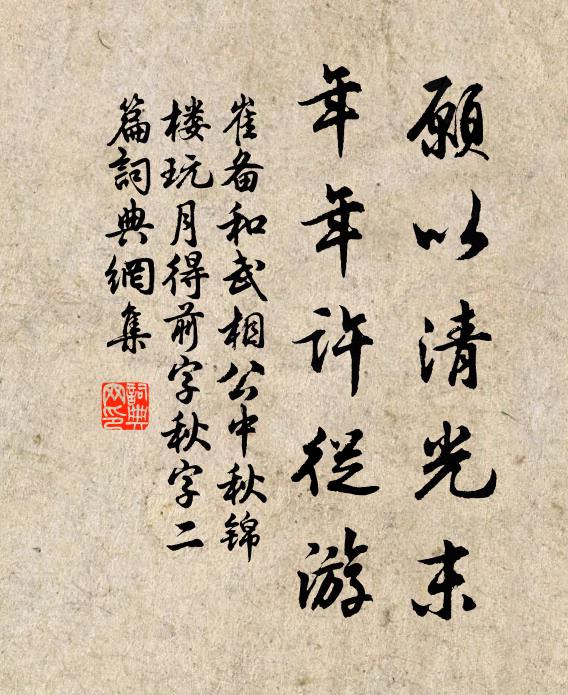 願以清光末
年年許從游
崔备和武相公中秋锦
楼玩月得前字秋字二
篇詞典網集
詞典网印